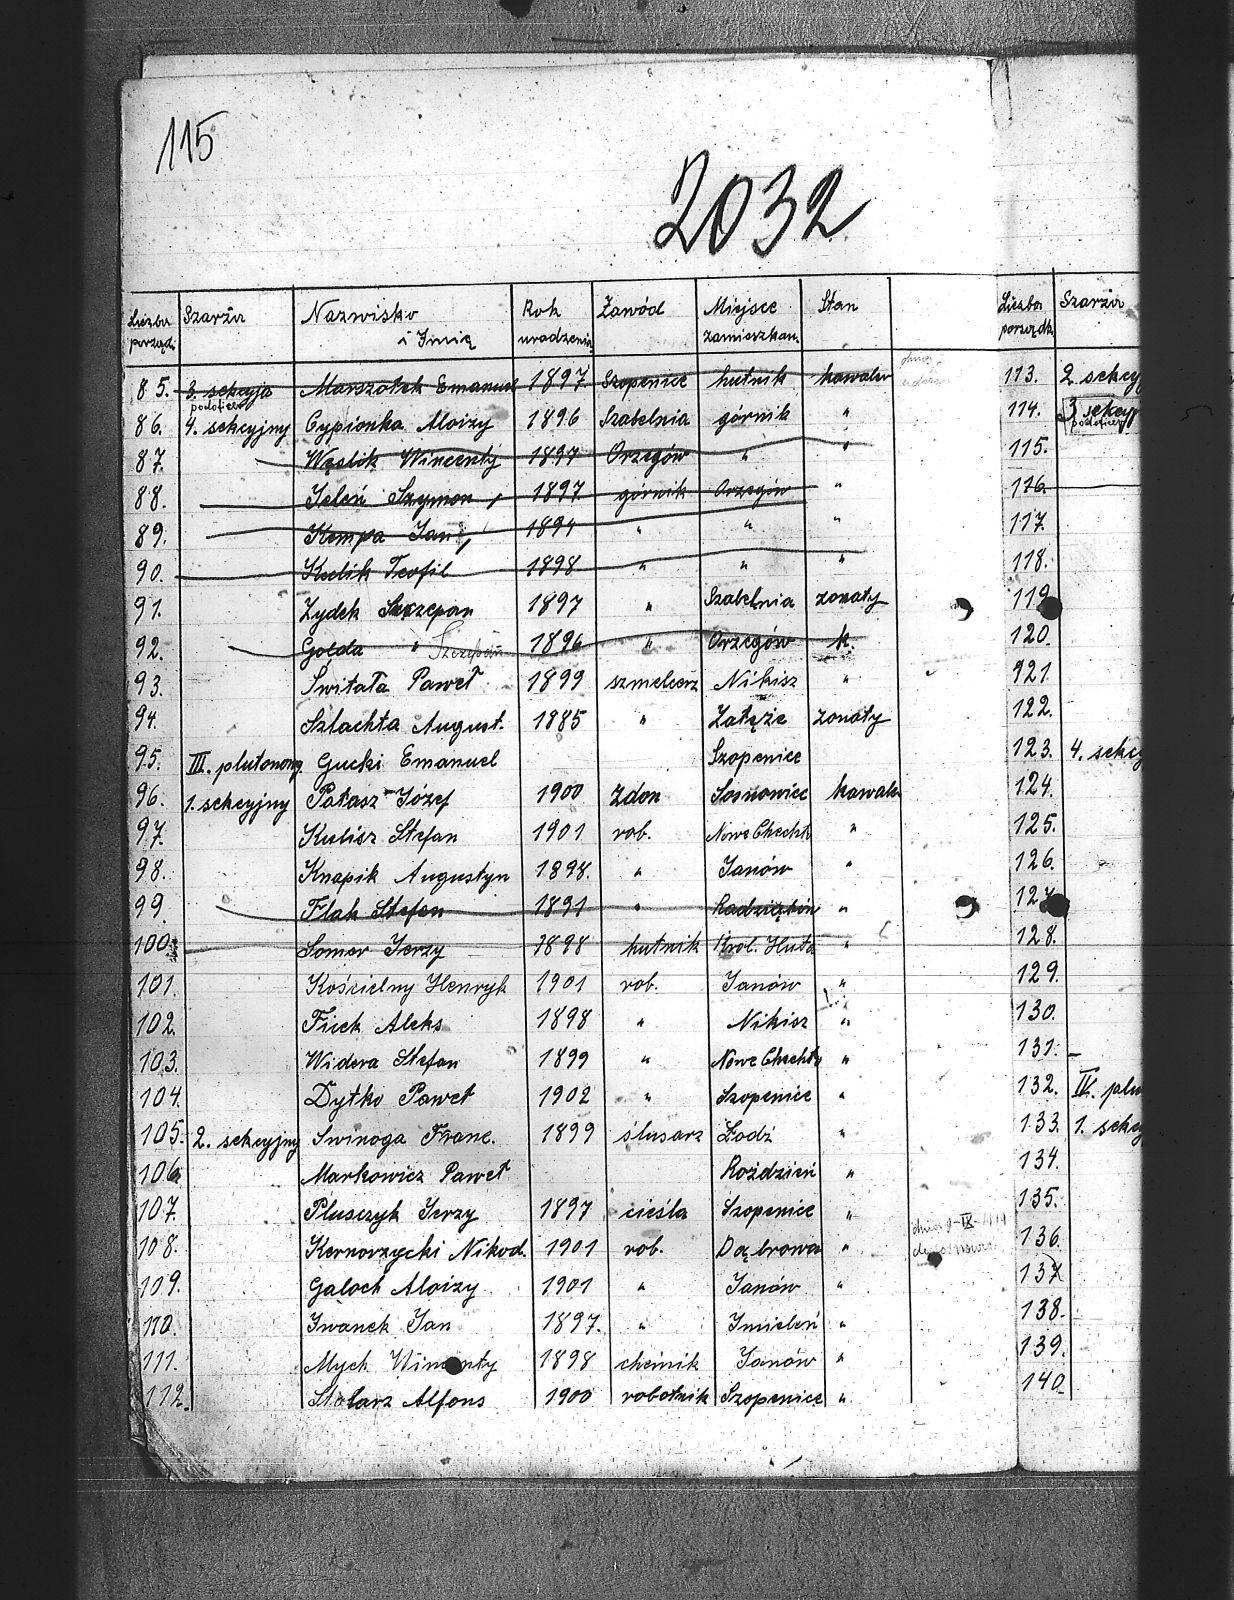 115
2032
Liczba porząd. Szarża Nazwisko i Imię Rok urodzenia Zawód Miejsce zamieszkan. Stan
85. 3. sekcyja podoficer Marszołek Emanuel 1897 Szopenice hutnik kawaler
86. 4. sekcyjny Cypionka Aloizy 1896 Szabelnia górnik "
87. Węslik Wincenty 1897 Orzegów " "
88. Jeleń Szymon 1897 górnik Orzegów "
89. Kempa Jan 1894 " " "
90. Kulik Teofil 1898 " " "
91. Zydek Szczepan 1897 " Szabelnia zonaty
92. Golda " Szczepan 1896 " Orzegów k.
93. Świtała Paweł 1899 szmelcerz Nikisz "
94. Szlachta August. 1885 " Załęże zonaty
95. III. plutonowy. Gucki Emanuel Szopenice
96. 1. sekcyjny Pałasz Józef 1900 Zdon Sosnowiec kawaler
97. Kulisz Stefan 1901 rob. Nowe Checht "
98. Knapik Augustyn 1898. " Janów "
99. Flak Stefan 1891 " Radzionków "
100. Somer Jerzy 1898 hutnik Krol. Huta "
101. Kościelny Henryk 1901 rob. Janów "
102. Ficek Aleks 1898 " Nikisz "
103. Widera Stefan 1899 " Nowe Chechty "
104. Dytko Paweł 1902 " Szopenice "
105. 2. sekcyjny Swinoga Franc. 1899 ślusarz Łodź "
106. Markowicz Paweł Roździeń "
107. Plusczyk Jerzy 1897 cieśla Szopenice "
108. Kernorzycki Nikod. 1901 rob. Dąbrowa "
109. Galoch Aloizy 1901 " Janów "
110. Iwanek Jan 1897. " Imieleń "
111. Mych Wincenty 1898 chémik Janów "
112. Stolarz Alfons 1900 robotnik Szopenice "
Liczba porządk. Szarża
113. 2. sekcyj
114. 3 sekcyj podoficer
115.
116.
117.
118.
119
120.
121
122.
123. 4. sekcy
124.
125.
126.
127
128.
129.
130.
131.
132. IV. plu
133. 1. sekcy
134.
135.
136.
137
138.
139.
140